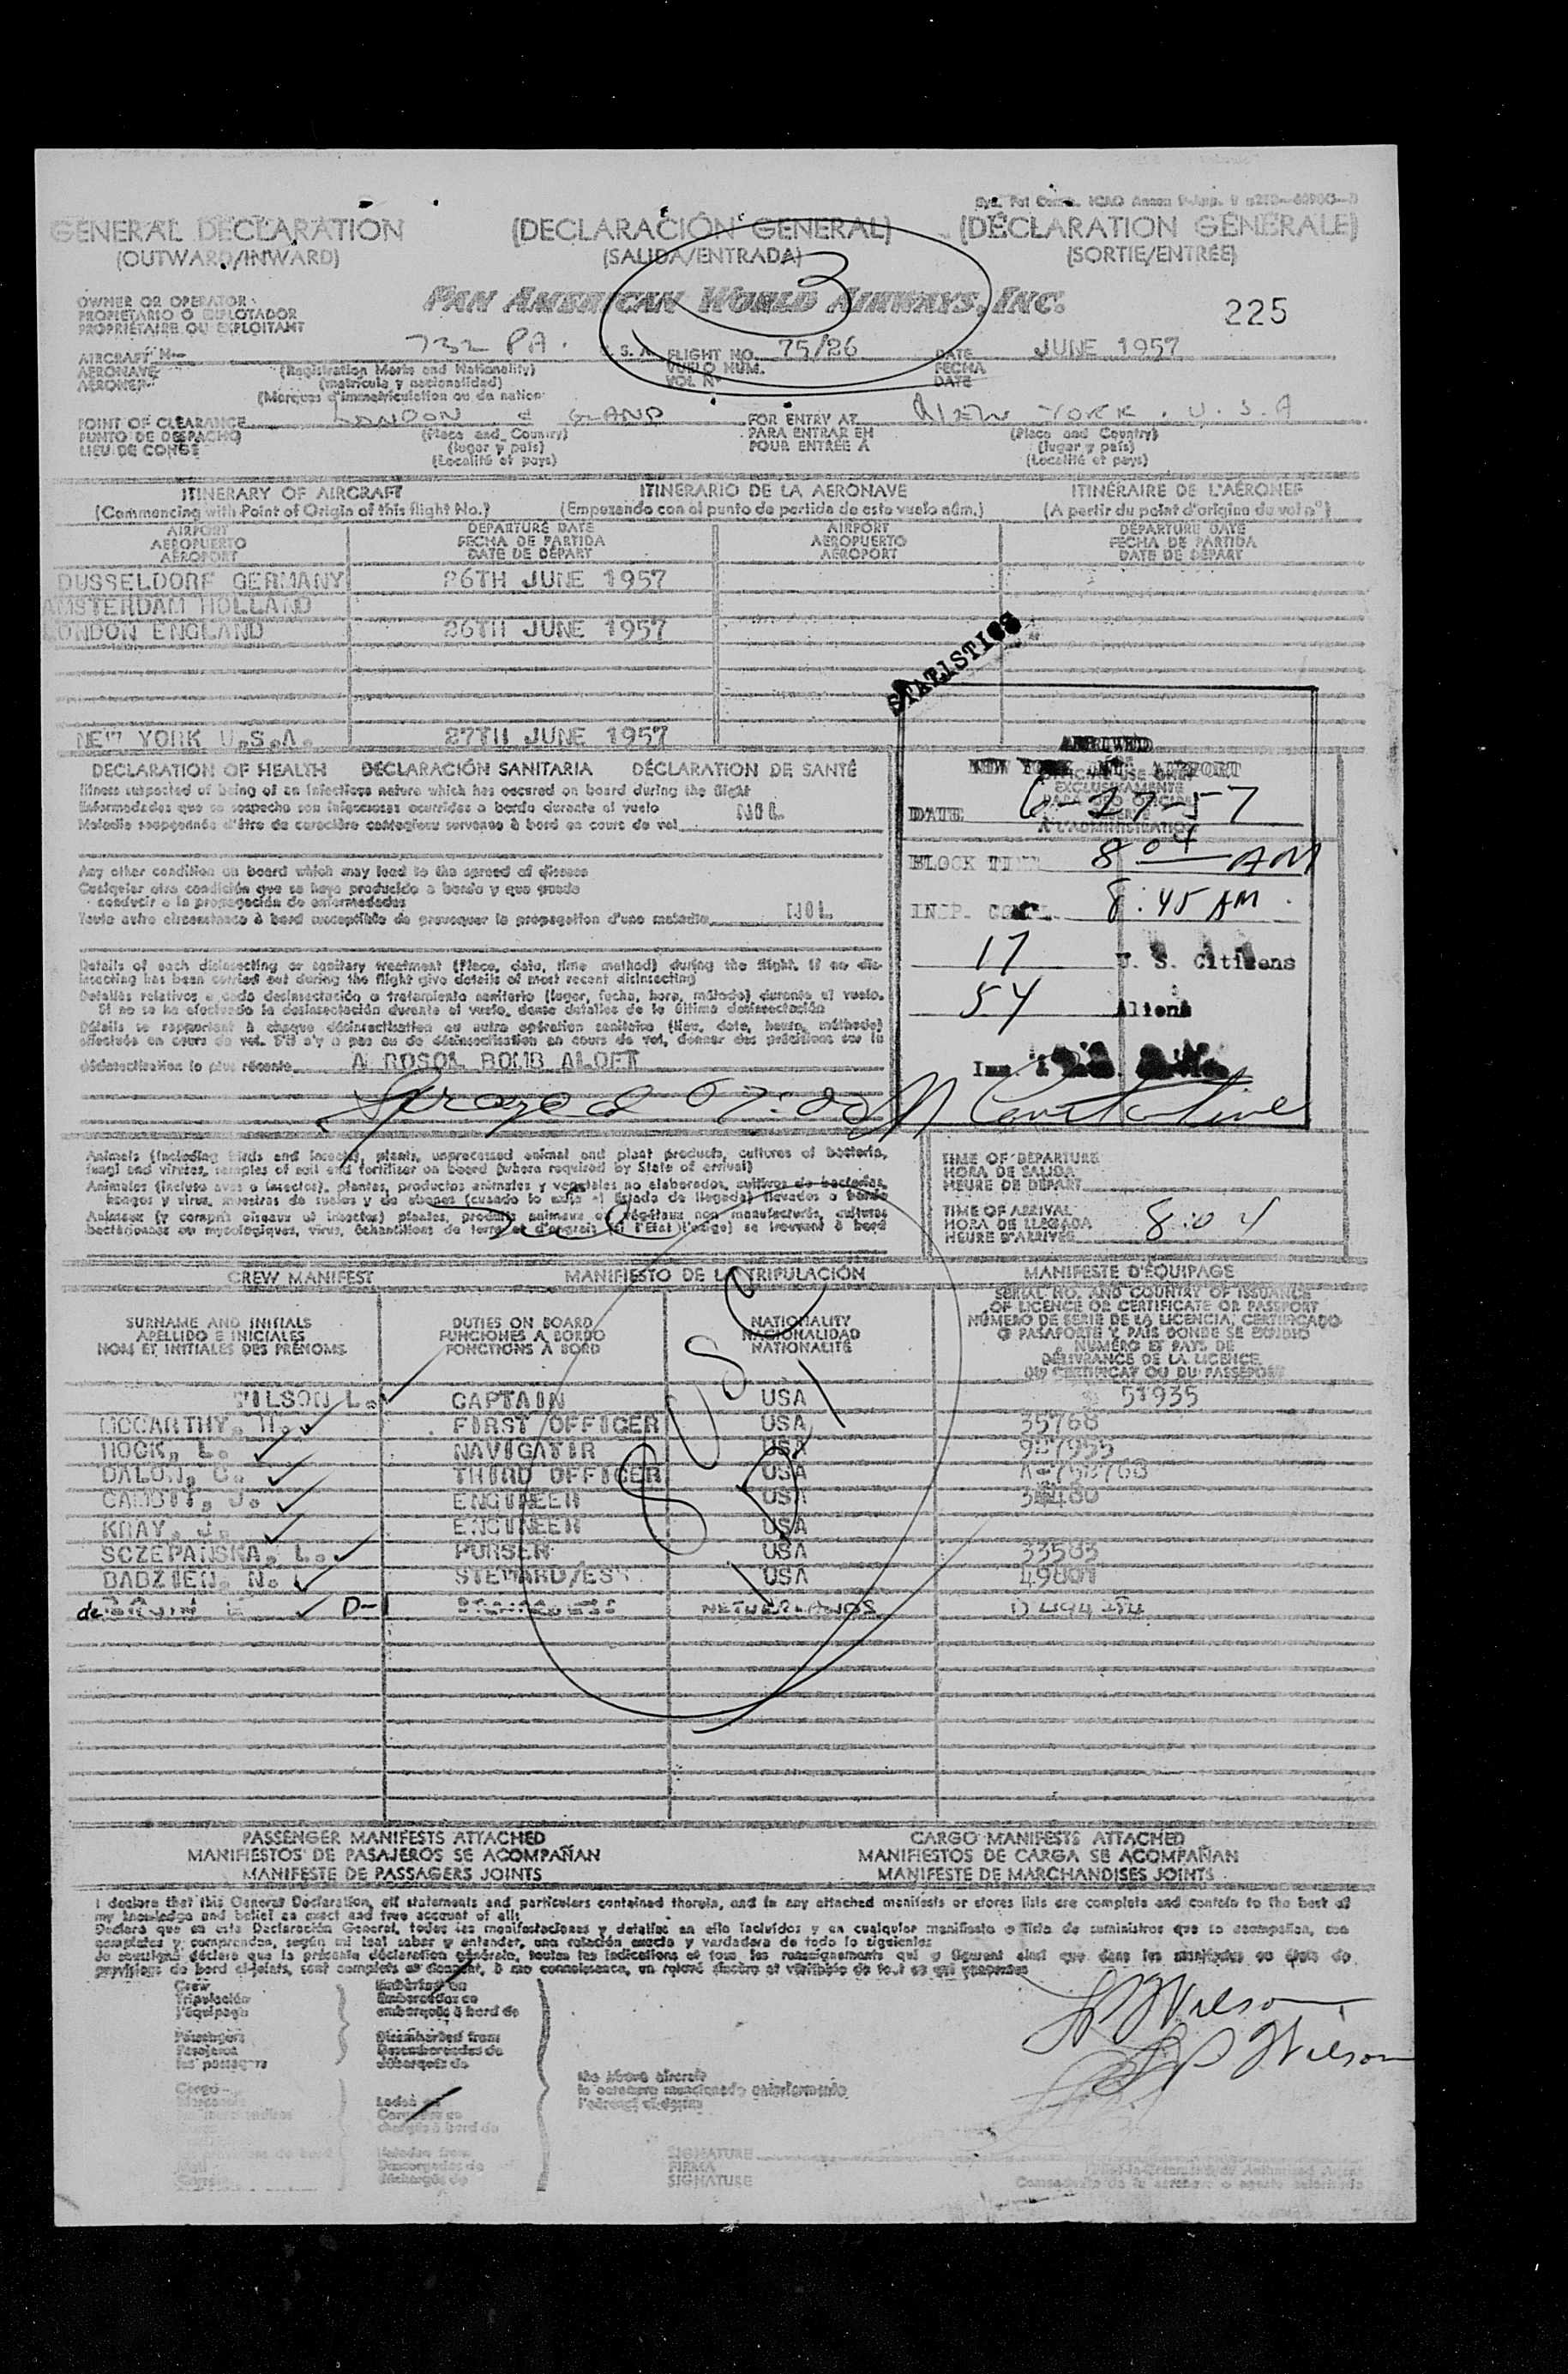 GENERAL DECLARATION (DECLARACIÓN GENERAL) (DÉCLARATION GÉNÉRALE)
(OUTWARD/INWARD) (SALIDA/ENTRADA) (SORTIE/ENTRÉE)
3
OWNER OR OPERATOR
PROPIETARIO O EXPLOTADOR
PROPRIÉTAIRE OU EXPLOITANT
PAN AMERICAN WORLD AIRWAYS, INC.
225
AIRCRAFT N— 732 PA. S. A. FLIGHT NO. 75/26 DATE JUNE 1957
AERONAVE (Registration Marks and Nationality) VUELO NÚM. FECHA
AÉRONEF (matrícula y nacionalidad) VOL Nº DATE
(Marques d'immatriculation ou de nation
POINT OF CLEARANCE LONDON GLAND FOR ENTRY AT NEW YORK. U.S.A
PUNTO DE DESPACHO (Place and Country) PARA ENTRAR EN (Place and Country)
LIEU DE CONGÉ (lugar y país) POUR ENTRÉE À (lugar y país)
(Localité et pays) (Localité et pays)
ITINERARY OF AIRCRAFT ITINERARIO DE LA AERONAVE ITINÉRAIRE DE L'AÉRONEF
(Commencing with Point of Origin of this flight No.) (Empezando con el punto de partida de este vuelo núm.) (A partir du point d'origine du vol nº)
AIRPORT DEPARTURE DATE AIRPORT DEPARTURE DATE
AEROPUERTO FECHA DE PARTIDA AEROPUERTO FECHA DE PARTIDA
AÉROPORT DATE DE DÉPART AÉROPORT DATE DE DÉPART
DUSSELDORF GERMANY 26TH JUNE 1957
AMSTERDAM HOLLAND
LONDON ENGLAND 26TH JUNE 1957
STATISTICS
NEW YORK U.S.A. 27TH JUNE 1957
ARRIVED
NEW YORK INT. AIRPORT
DATE 6-27-57
BLOCK TIME 8 04 AM
INSP. COMPL. 8:45 AM
17 U. S. Citizens
54 Aliens
DECLARATION OF HEALTH DECLARACIÓN SANITARIA DÉCLARATION DE SANTÉ
Illness suspected of being of an infectious nature which has occured on board during the flight
Enfermedades que se sospecha son infecciosas ocurridas a bordo durante el vuelo
Maladie soupçonnée d'être de caractère contagieux survenue à bord en cours de vol NIL
Any other condition on board which may lead to the spread of disease
Cualquier otra condición que se haya producido a bordo y que pueda
conducir a la propagación de enfermedades
Toute autre circonstance à bord susceptible de provoquer la propagation d'une maladie NIL
Details of each disinsecting or sanitary treatment (Place, date, time method) during the flight. If no dis-
insecting has been carried out during the flight give details of most recent disinsecting
Detalles relativos a cada desinsectación o tratamiento sanitario (lugar, fecha, hora, método) durante el vuelo.
Si no se ha efectuado la desinsectación durante el vuelo, dense detalles de la última desinsectación
Détails se rapportant à chaque désinsectisation ou autre opération sanitaire (lieu, date, heure, méthode)
effectués en cours de vol. S'il n'y a pas eu de désinsectisation en cours de vol, donner des précisions sur la
désinsectisation la plus récente A ROSOL BOMB ALOFT
Sprayed 07:00 Constantine
Animals (including birds and insects), plants, unprocessed animal and plant products, cultures of bacteria,
fungi and viruses, samples of soil and fertiliser on board (where required by State of arrival)
Animales (incluso aves o insectos), plantas, productos animales y vegetales no elaborados, cultivos de bacterias,
hongos y virus, muestras de suelos y de abonos (cuando lo exija el Estado de llegada) llevados a bordo
Animaux (y compris oiseaux et insectes) plantes, produits animaux ou végétaux non manufacturés, cultures
bactériennes ou mycologiques, virus, échantillons de terre et d'engrais (si l'Etat l'exige) se trouvant à bord
TIME OF DEPARTURE
HORA DE SALIDA
HEURE DE DÉPART
TIME OF ARRIVAL
HORA DE LLEGADA 8:04
HEURE D'ARRIVÉE
CREW MANIFEST MANIFIESTO DE LA TRIPULACIÓN MANIFESTE D'ÉQUIPAGE
SURNAME AND INITIALS DUTIES ON BOARD NATIONALITY SERIAL NO. AND COUNTRY OF ISSUANCE
APELLIDO E INICIALES FUNCIONES A BORDO NACIONALIDAD OF LICENCE OR CERTIFICATE OR PASSPORT
NOM ET INITIALES DES PRÉNOMS FONCTIONS À BORD NATIONALITÉ NÚMERO DE SERIE DE LA LICENCIA, CERTIFICADO
O PASAPORTE Y PAÍS DONDE SE EXPIDIÓ
NUMÉRO ET PAYS DE
DÉLIVRANCE DE LA LICENCE
DU CERTIFICAT OU DU PASSEPORT
WILSON L. CAPTAIN USA 51935
MCCARTHY, H. FIRST OFFICER USA 35768
HOCK, L. NAVIGATIR USA
THIRD OFFICER USA
ENGINEER USA
KRAY, J. ENGINEER USA
SCZEPANSKA, L. PURSER USA 33583
BADZIEN. N. STEWARD/ESS USA 49801
de D-1 NETHERLANDS
8 USC
D-1
PASSENGER MANIFESTS ATTACHED CARGO MANIFESTS ATTACHED
MANIFIESTOS DE PASAJEROS SE ACOMPAÑAN MANIFIESTOS DE CARGA SE ACOMPAÑAN
MANIFESTE DE PASSAGERS JOINTS MANIFESTE DE MARCHANDISES JOINTS
I declare that this General Declaration, all statements and particulars contained therein, and in any attached manifests or stores lists are complete and contain to the best of
my knowledge and belief an exact and true account of all:
Crew
Tripulación
l'équipage
Embarcados en
embarqués à bord de
Passengers
Pasajeros
les passagers
Disembarked from
Desembarcados de
débarqués de
LP Wilson
LP Wilson
the above aircraft
SIGNATURE
FIRMA
SIGNATURE